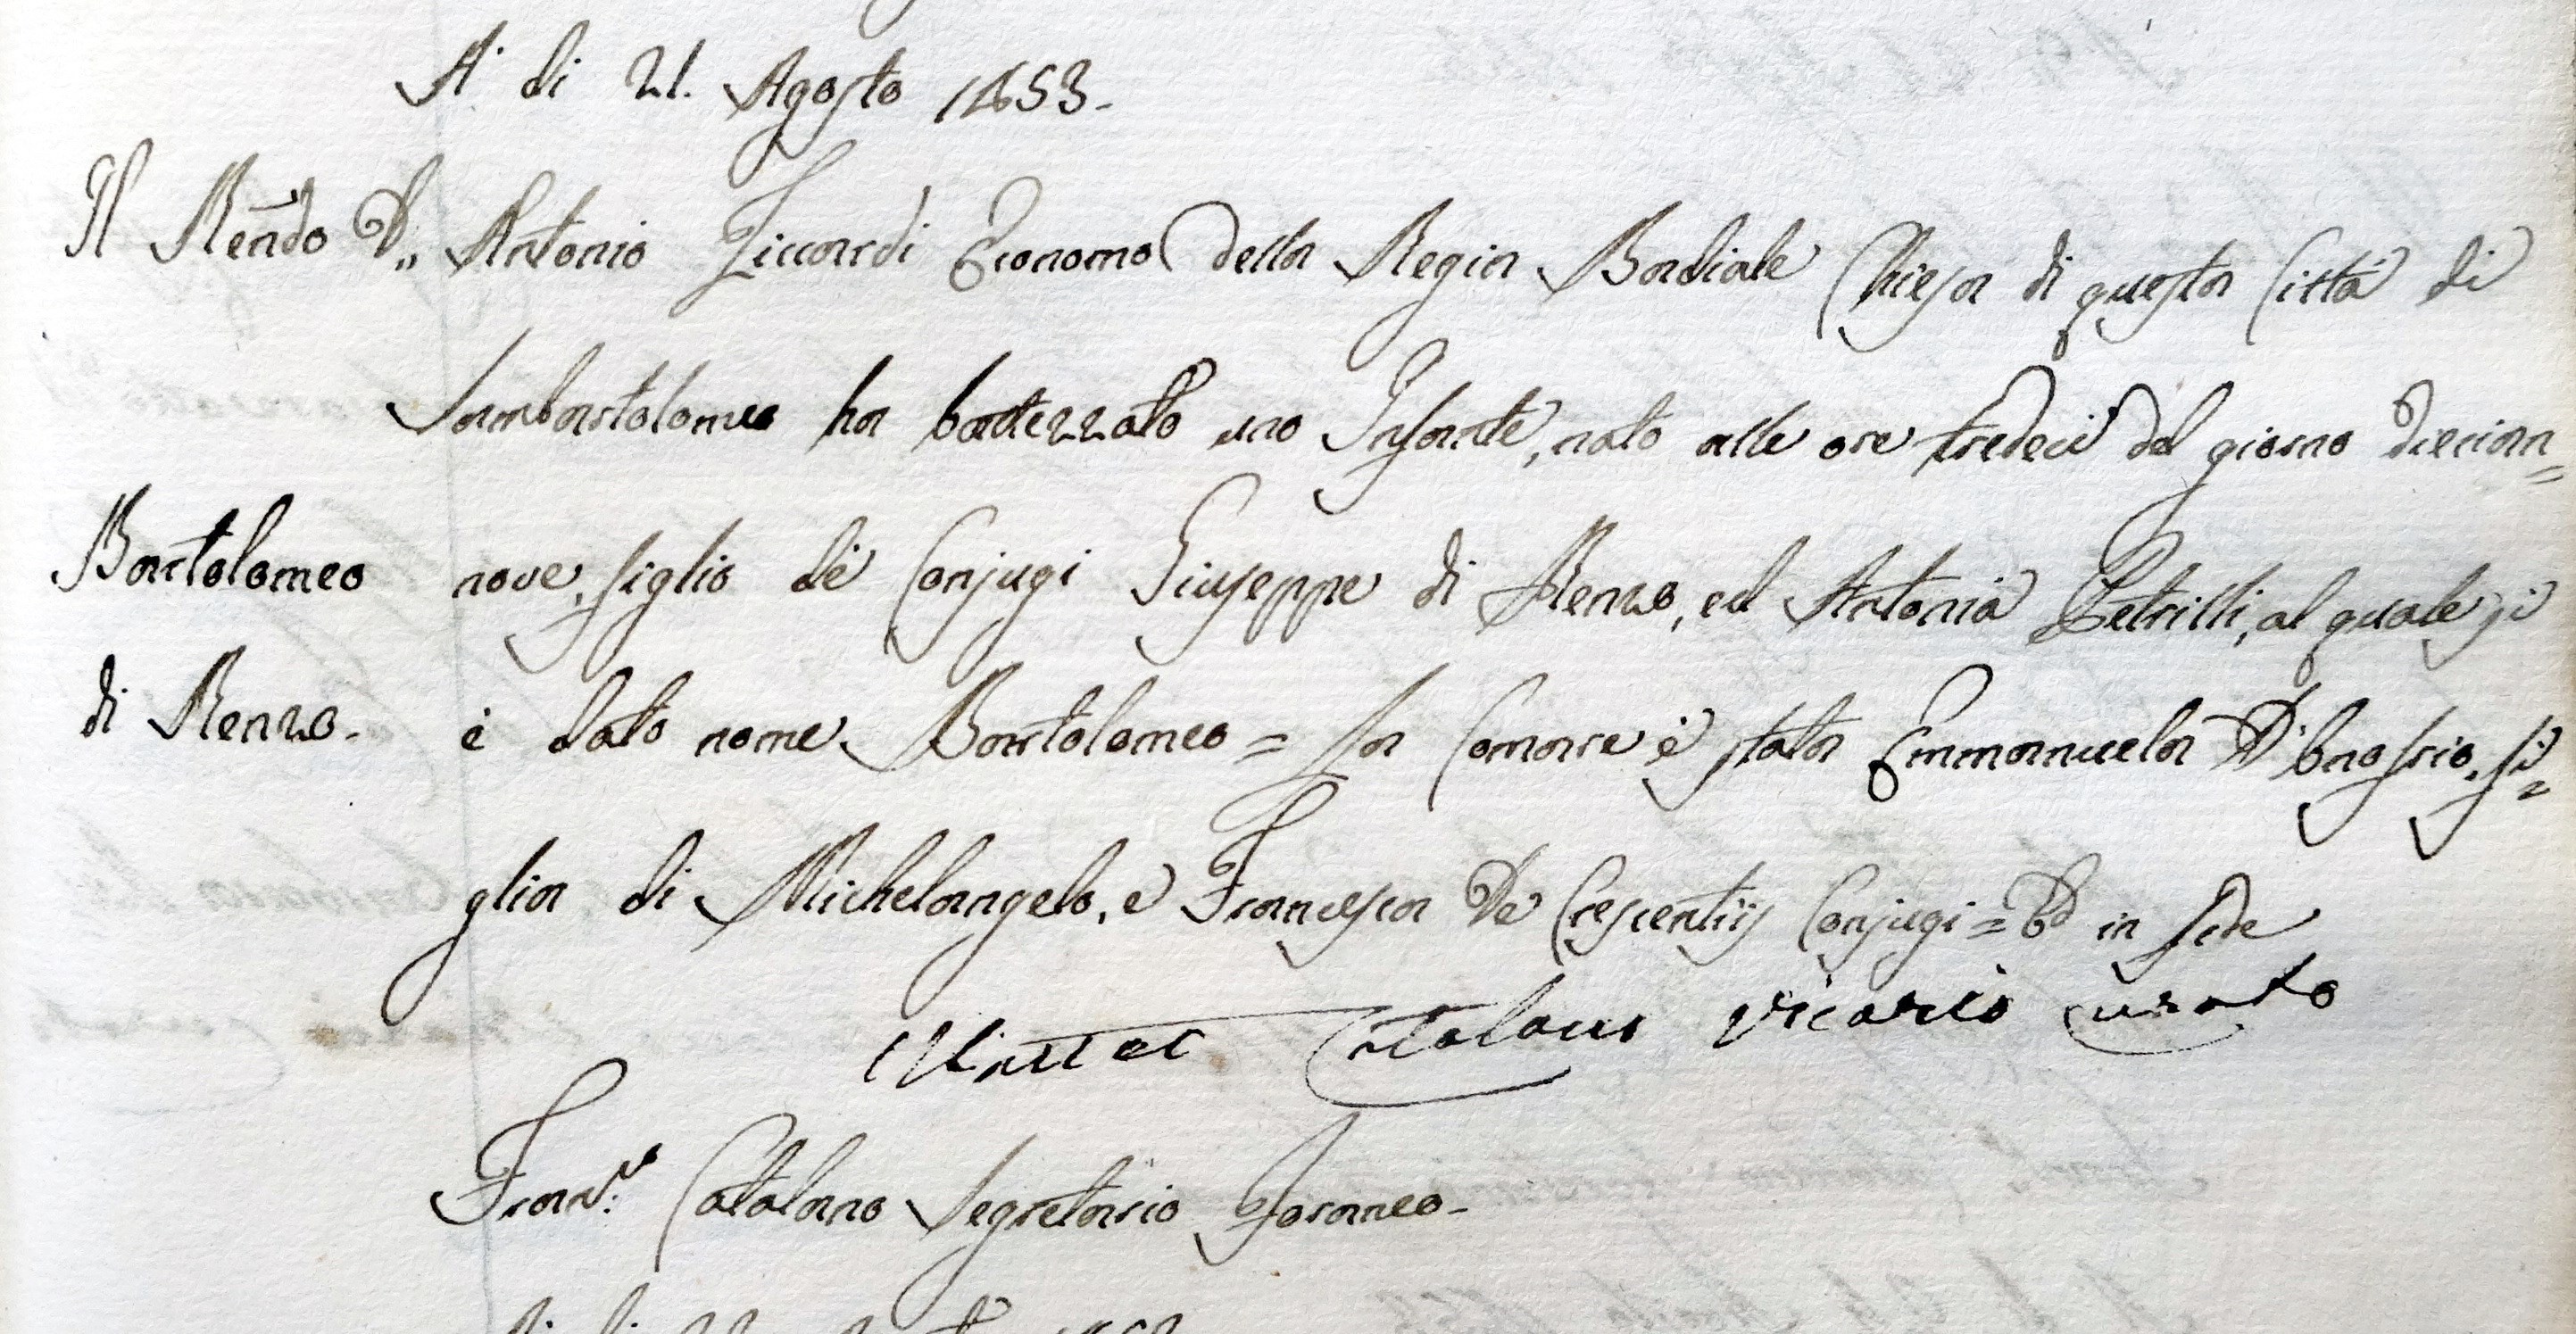 A' di 21. Agosto 1853.
Il Rendo D,, Antonio Ziccardi Economo della Regia Badiale Chiesa di questa Città di
Sambartolomeo ha battezzato uno Infante, nato alle ore tredeci del giorno diecian=
Bartolomeo nove, figlio de' Conjugi Giuseppe di Renzo, ed Antonia Petrilli, al quale si
di Renzo. è dato nome Bartolomeo = La Comare è stata Emmanuela D'Onofrio, fi=
glia di Michelangelo, e Francesca De Crescentiis Conjugi = Ed in fede
Catalano Vicario Curato
Franc.co Catalano Segretario Foraneo.